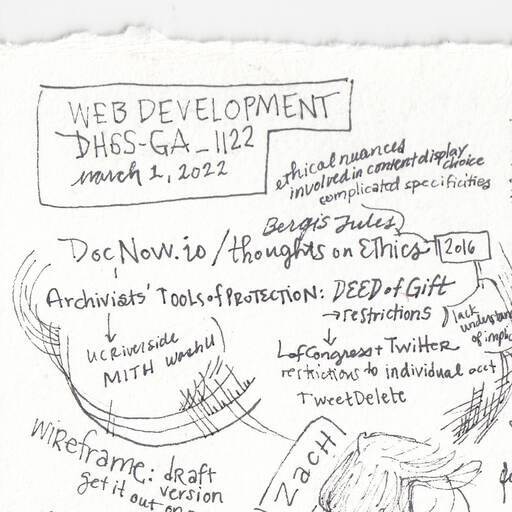 WEB DEVELOPMENT
DHSS-GA_1122
march 1, 2022
ethical nuances
involved in content display
choice
complicated specificities
Bergis Jules
DocNow.io / thoughts on Ethics 2016
Archivists' TOOLS of PROTECTION: DEED of Gift
→ restrictions
lack
understan
of implic
UC Riverside
MITH WashU
L of Congress + Twitter
restrictions to individual acct
TweetDelete
WIREFRAME: dRaft
version
get it out on
ZacH